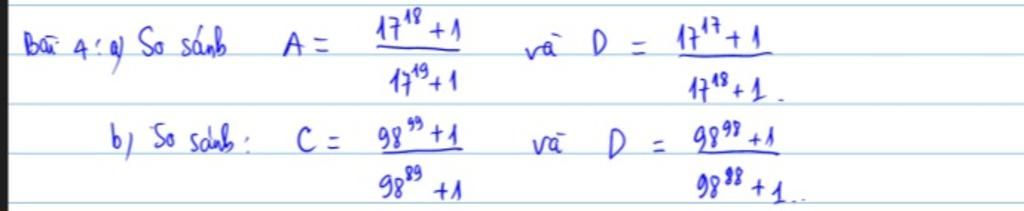 Bài 4: a) So sánh A = \frac{17^{18}+1}{17^{19}+1} và D = \frac{17^{17}+1}{17^{18}+1}.
b) So sánh: C = \frac{98^{99}+1}{98^{89}+1} và D = \frac{98^{98}+1}{98^{88}+1}..